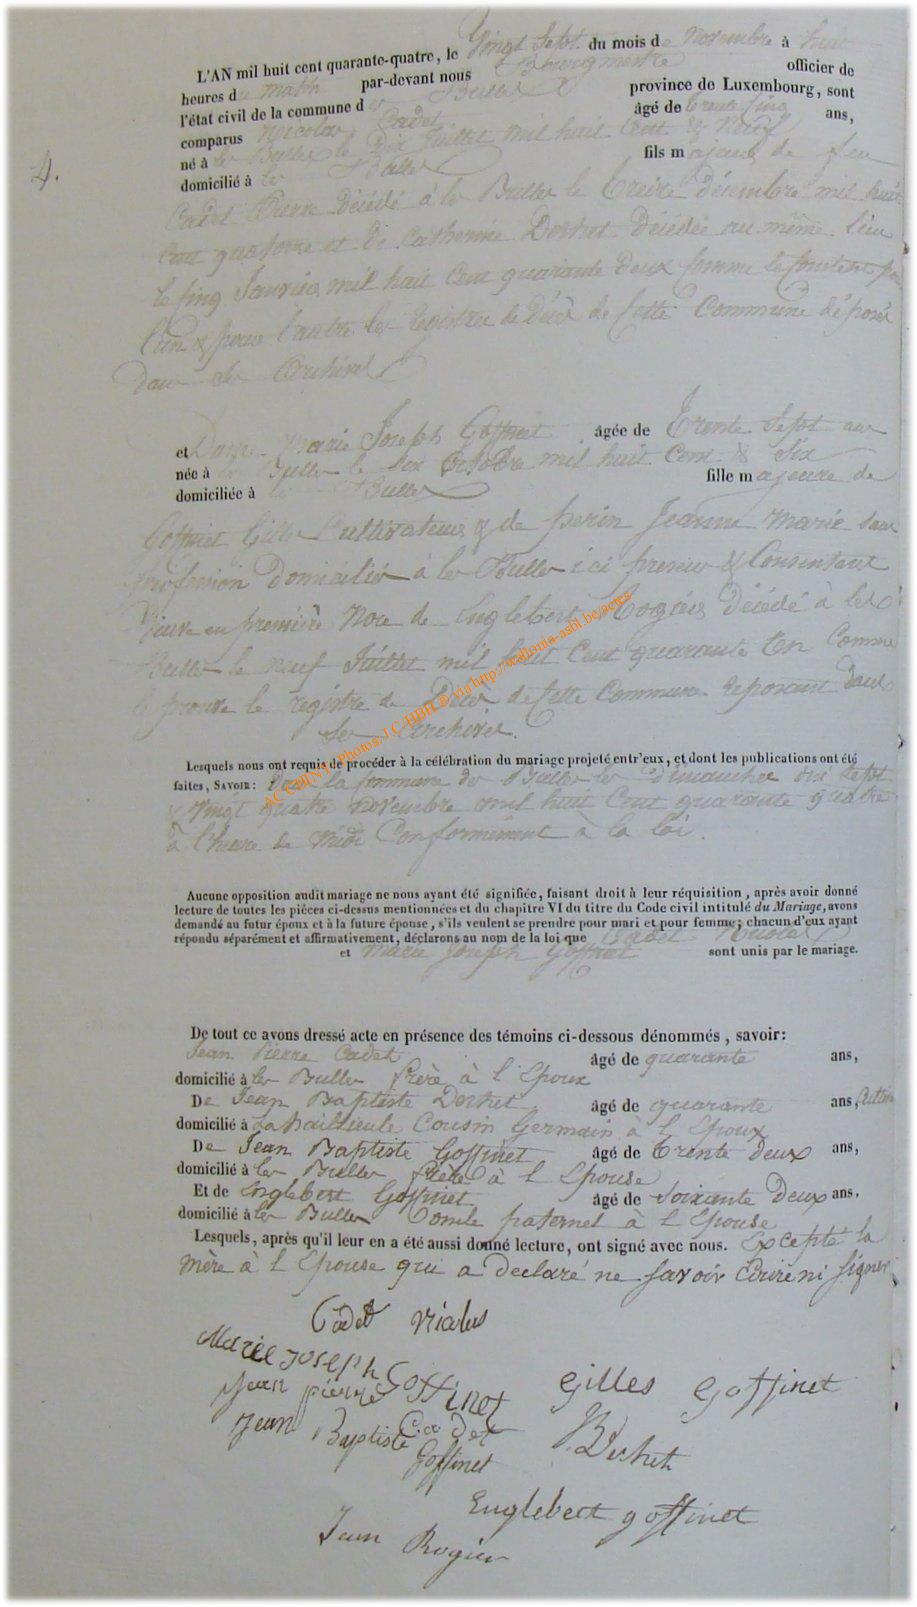 L'AN mil huit cent quarante-quatre, le Vingt Sept du mois de Novembre à huit
heures du matin par-devant nous Bourgmestre officier de
l'état civil de la commune de Bulles province de Luxembourg, sont
comparus Nicolas Cadet âgé de trente sinq ans,
né à les Bulles le dix Juillet mil huit Cent & Neuf
domicilié à les Bulles fils majeur de feu
4.
Cadet Pierre Décédé à les Bulles le treize décembre mil huit
Cent quatorze et de Catherinne Dorhet Décédée au même lieu
le sinq Janvier mil huit Cent quarante deux comme le constate pour
l'un & pour l'autre les registres de Décès de cette Commune déposés
dans les Archives
et Dame Marie Joseph Goffinet âgée de Trente Sept ans
née à les Bulles le Six Octobre mil huit Cent & Six
domiciliée à les Bulles fille majeure de
Goffinet Gilles Cultivateur & de perin Jeanne Marie sans
profession Domiciliés à les Bulles ici présens & Consentant
Veuve en première Noce de Englebert Rogier Décédé à les
Bulles le neuf Juillet mil huit Cent quarante un Comme
le prouve le registre de Décès de cette Commune reposant dans
les Archives.
Lesquels nous ont requis de procéder à la célébration du mariage projeté entr'eux, et dont les publications ont été
faites, SAVOIR : Dans la commune des Bulles les Dimanches dix Sept
& vingt quatre novembre mil huit Cent quarante quatre
à l'heure de Midi Conformément à la loi.
Aucune opposition audit mariage ne nous ayant été signifiée, faisant droit à leur réquisition, après avoir donné
lecture de toutes les pièces ci-dessus mentionnées et du chapitre VI du titre du Code civil intitulé du Mariage, avons
demandé au futur époux et à la future épouse, s'ils veulent se prendre pour mari et pour femme; chacun d'eux ayant
répondu séparément et affirmativement, déclarons au nom de la loi que Cadet Nicolas
et Marie Joseph Goffinet sont unis par le mariage.
De tout ce avons dressé acte en présence des témoins ci-dessous dénommés, savoir:
Jean Pierre Cadet âgé de quarante ans,
domicilié à les Bulles frère à l'Epoux
De Jean Baptiste Dorhet âgé de quarante ans,
domicilié à Lahaillieule Cousin Germain à l'Epoux
De Jean Baptiste Goffinet âgé de trente deux ans,
domicilié à les Bulles frère à l'Epouse
Et de Englebert Goffinet âgé de Soixante Deux ans,
domicilié à les Bulles Oncle paternel à l'Epouse
Lesquels, après qu'il leur en a été aussi donné lecture, ont signé avec nous. Excepté la
mère à l'Epouse qui a declaré ne savoir Ecrire ni signer
Cadet Nicolas
Marie Joseph Goffinet
Gilles Goffinet
Jean pierre Cadet
Jean Baptiste Goffinet
Englebert goffinet
Jean Rogier
ACGHINT - Photos J.C./HBR © via http://wallonia-asbl.be/actes